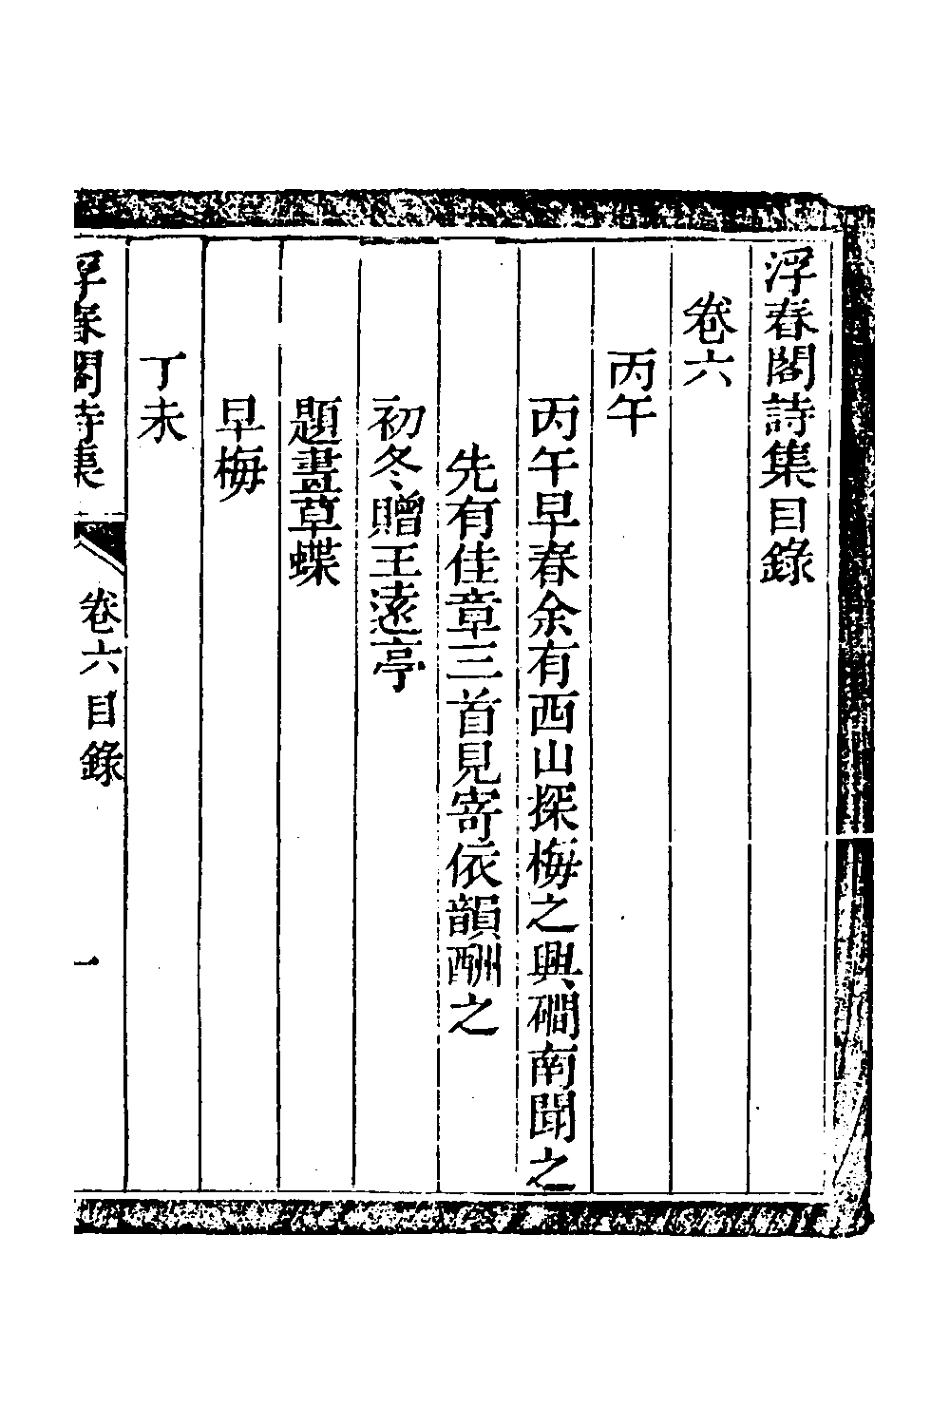 浮春閣詩集目錄
卷六
丙午
丙午早春余有西山探梅之興磵南聞之
先有佳章三首見寄依韻酬之
初冬贈王遠亭
題畫草蝶
早梅
丁未
浮春閣詩集
卷六目錄
一